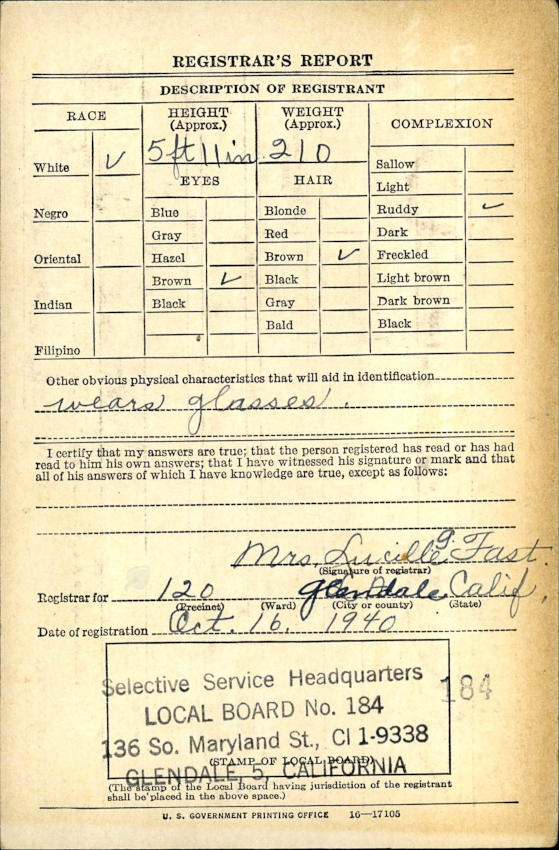 REGISTRAR'S REPORT
DESCRIPTION OF REGISTRANT
RACE
HEIGHT (Approx.)
WEIGHT (Approx.)
COMPLEXION
White ✓
5 ft 11 in
210
Sallow
EYES
HAIR
Light
Negro
Blue
Blonde
Ruddy ✓
Gray
Red
Dark
Oriental
Hazel
Brown ✓
Freckled
Brown ✓
Black
Light brown
Indian
Black
Gray
Dark brown
Bald
Black
Filipino
Other obvious physical characteristics that will aid in identification
wears glasses.
I certify that my answers are true; that the person registered has read or has had
read to him his own answers; that I have witnessed his signature or mark and that
all of his answers of which I have knowledge are true, except as follows:
Mrs. Lucille G. Fast.
(Signature of registrar)
Registrar for 120 Glendale, Calif.
(Precinct) (Ward) (City or county) (State)
Date of registration Oct. 16, 1940
Selective Service Headquarters
184
LOCAL BOARD No. 184
136 So. Maryland St., CI 1-9338
(STAMP OF LOCAL BOARD)
GLENDALE, 5, CALIFORNIA
(The stamp of the Local Board having jurisdiction of the registrant
shall be placed in the above space.)
U. S. GOVERNMENT PRINTING OFFICE 16—17105